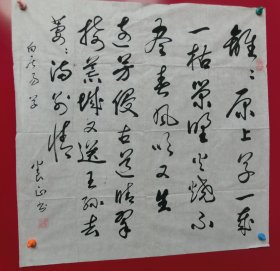 離〻原上草一歲
一枯榮野火燒不
盡春風吹又生
遠芳侵古道晴翠
接荒城又送王孫去
萋〻滿別情
白居易 草